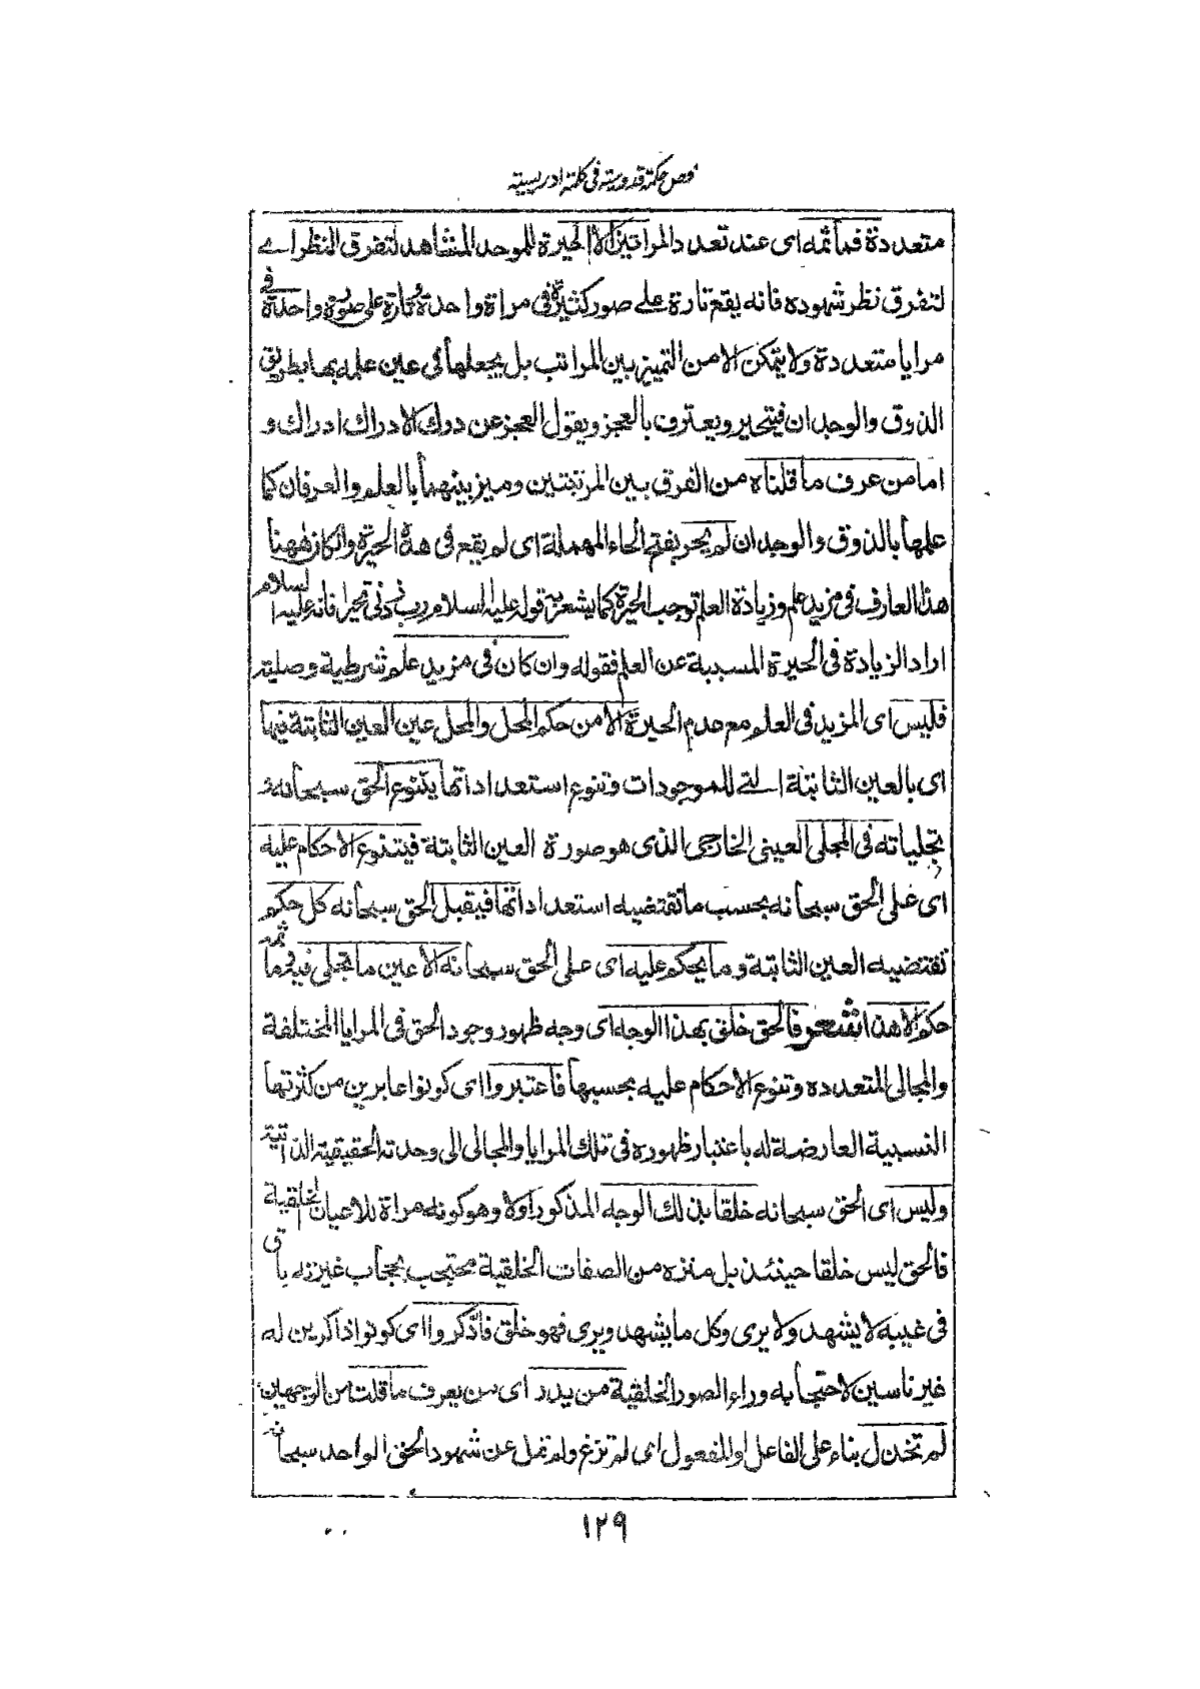 فص حكمة قدوسية في كلمة ادريسية
متعددة فما ثمه اى عند تعدد المراتب الا الحيرة للموحد المشاهد لتفرق النظر اے
لتفرق نظر شهوده فانه يقع تارة علے صور كثيرة فى مراة واحدة وتارة على صورة واحدة فى
مرايا متعددة ولا يتمكن الا من التميز بين المراتب بل يجعلها فى عين علمه بها بطريق
الذوق والوجدان فيتحير ويعترف بالعجز ويقول العجز عن درك الادراك ادراك و
اما من عرف ما قلناه من الفرق بين المرتبتين وميز بينهما بالعلم والعرفان كما
علمها بالذوق والوجدان لم يحر بفتح الحاء المهملة اى لم يقع فى هذه الحيرة وان كان ههنا
هذا العارف فى مزيد علم وزيادة العلم توجب الحيرة كما يشعر به قوله عليه السلام رب زدنى تحيرا فانه عليه السلام
اراد الزيادة فى الحيرة المسببة عن العلم فقوله وان كان فى مزيد علم شرطية وصلية
فليس اى المزيد فى العلم مع عدم الحيرة الا من حكم المحل والمحل عين العين الثابتة فيها
اى بالعين الثابتة التے للموجودات وتنوع استعداداتها يتنوع الحق سبحانه و
تجلياته فى المجلى العينى الخارجى الذى هو صورة العين الثابتة فيتنوع الاحكام عليه
اى على الحق سبحانه بحسب ما تقتضيه استعداداتها فيقبل الحق سبحانه كل حكم
تقتضيه العين الثابتة وما يحكم عليه اى على الحق سبحانه الا عين ما تجلى فيه ثمه وما
حكم الا هذا شعر فالحق خلق بهذا الوجه اى وجه ظهور وجود الحق فى المرايا المختلفة
والمجالى المتعدده وتنوع الاحكام عليه بحسبها فاعتبروا اى كونوا عابرين من كثرتها
النسبية العارضة له باعتبار ظهوره فى تلك المرايا والمجالى الى وحدته الحقيقية الذاتية
وليس اى الحق سبحانه خلقا بذلك الوجه المذكور اولا وهو كونه مراة للاعيان الخلقية
فالحق ليس خلقا حينئذ بل منزه من الصفات الخلقية محتجب بحجاب غيرته باق
فى غيبه لا يشهد ولا يرى وكل ما يشهد ويرى فهو خلق فاذكروا اى كونوا ذاكرين له
غير ناسين لاحتجابه وراء الصور الخلقية من يدر اى من يعرف ما قلت من الوجهين
لم تخذل بناء على الفاعل او المفعول اى لم تزغ ولم تمل عن شهود الحق الواحد سبحانه
١٢٩